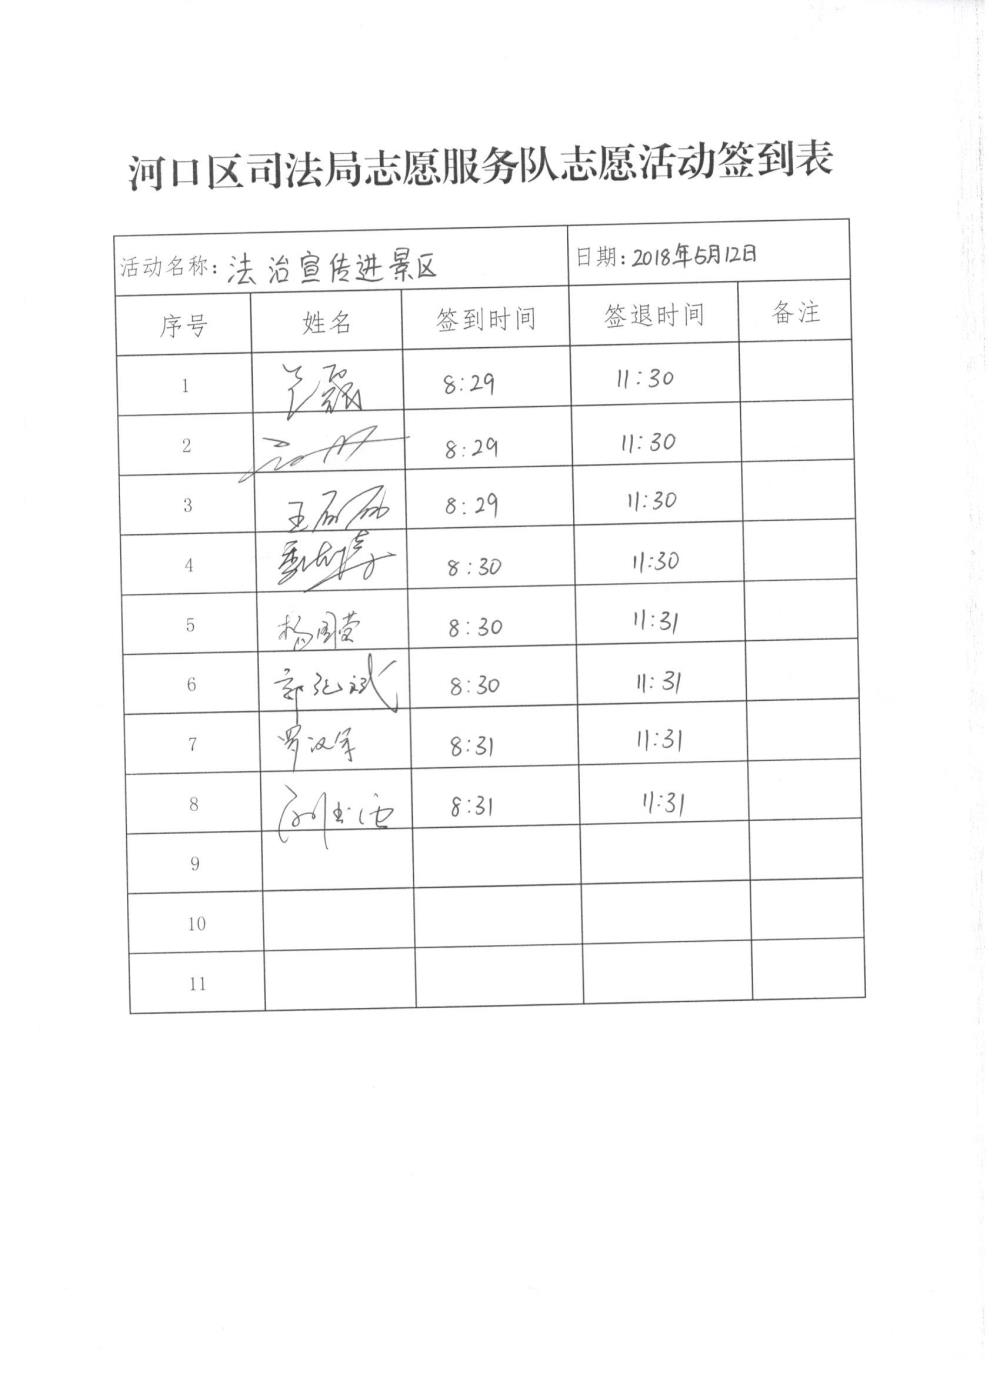 河口区司法局志愿服务队志愿活动签到表
活动名称: 法治宣传进景区 日期: 2018年5月12日
序号 姓名 签到时间 签退时间 备注
1 8:29 11:30
2 8:29 11:30
3 王 8:29 11:30
4 8:30 11:30
5 杨国萱 8:30 11:31
6 郭纪斌 8:30 11:31
7 罗汉军 8:31 11:31
8 8:31 11:31
9
10
11